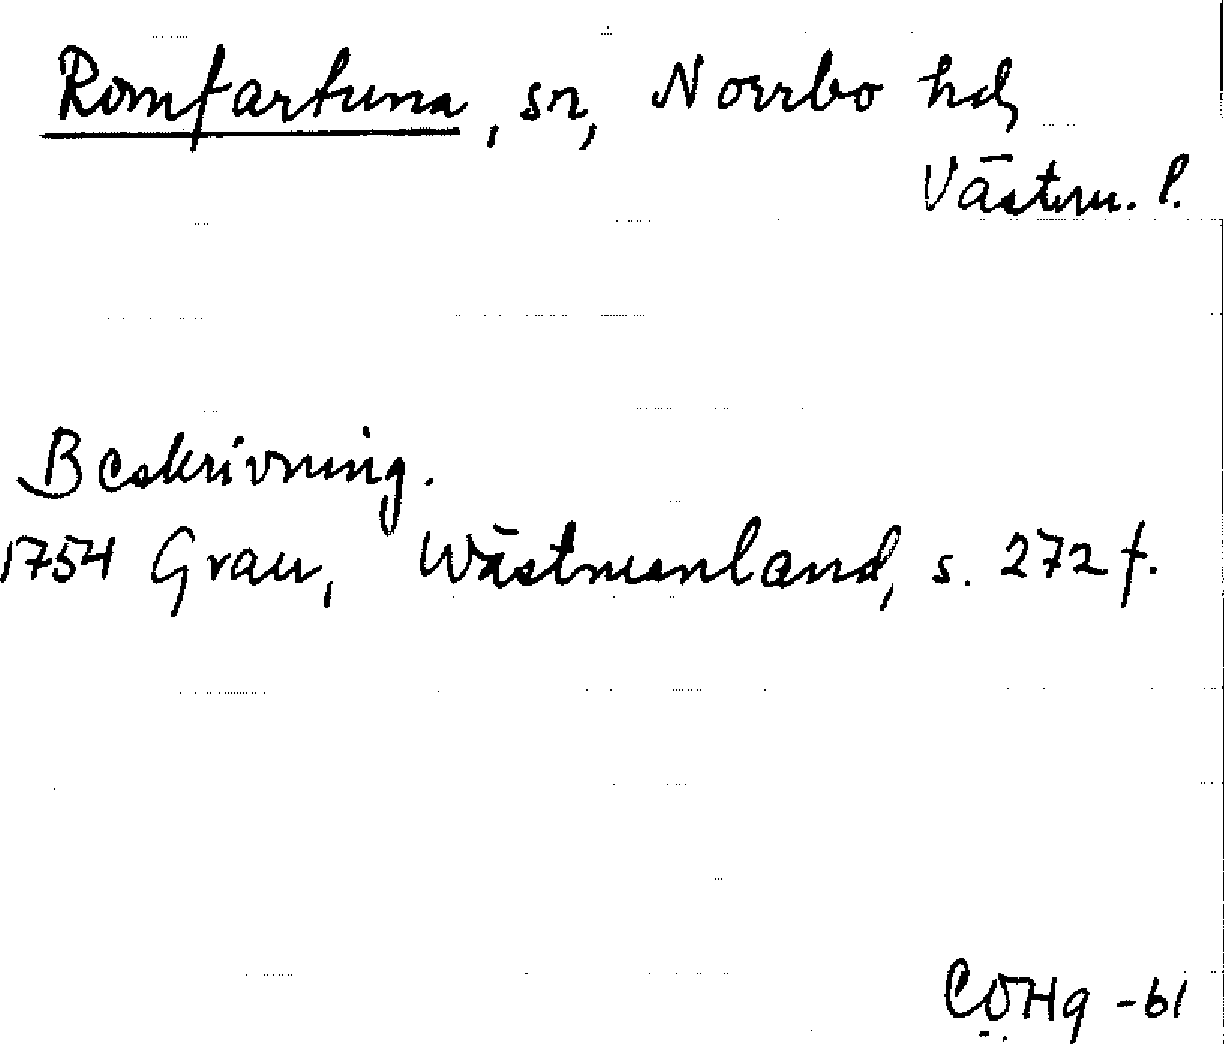 Romfartuna, sn, Norrbo hd,
Västm. l.
Beskrivning.
1754 Grau, Wästmanland, s. 272 f.
CÖHg -61